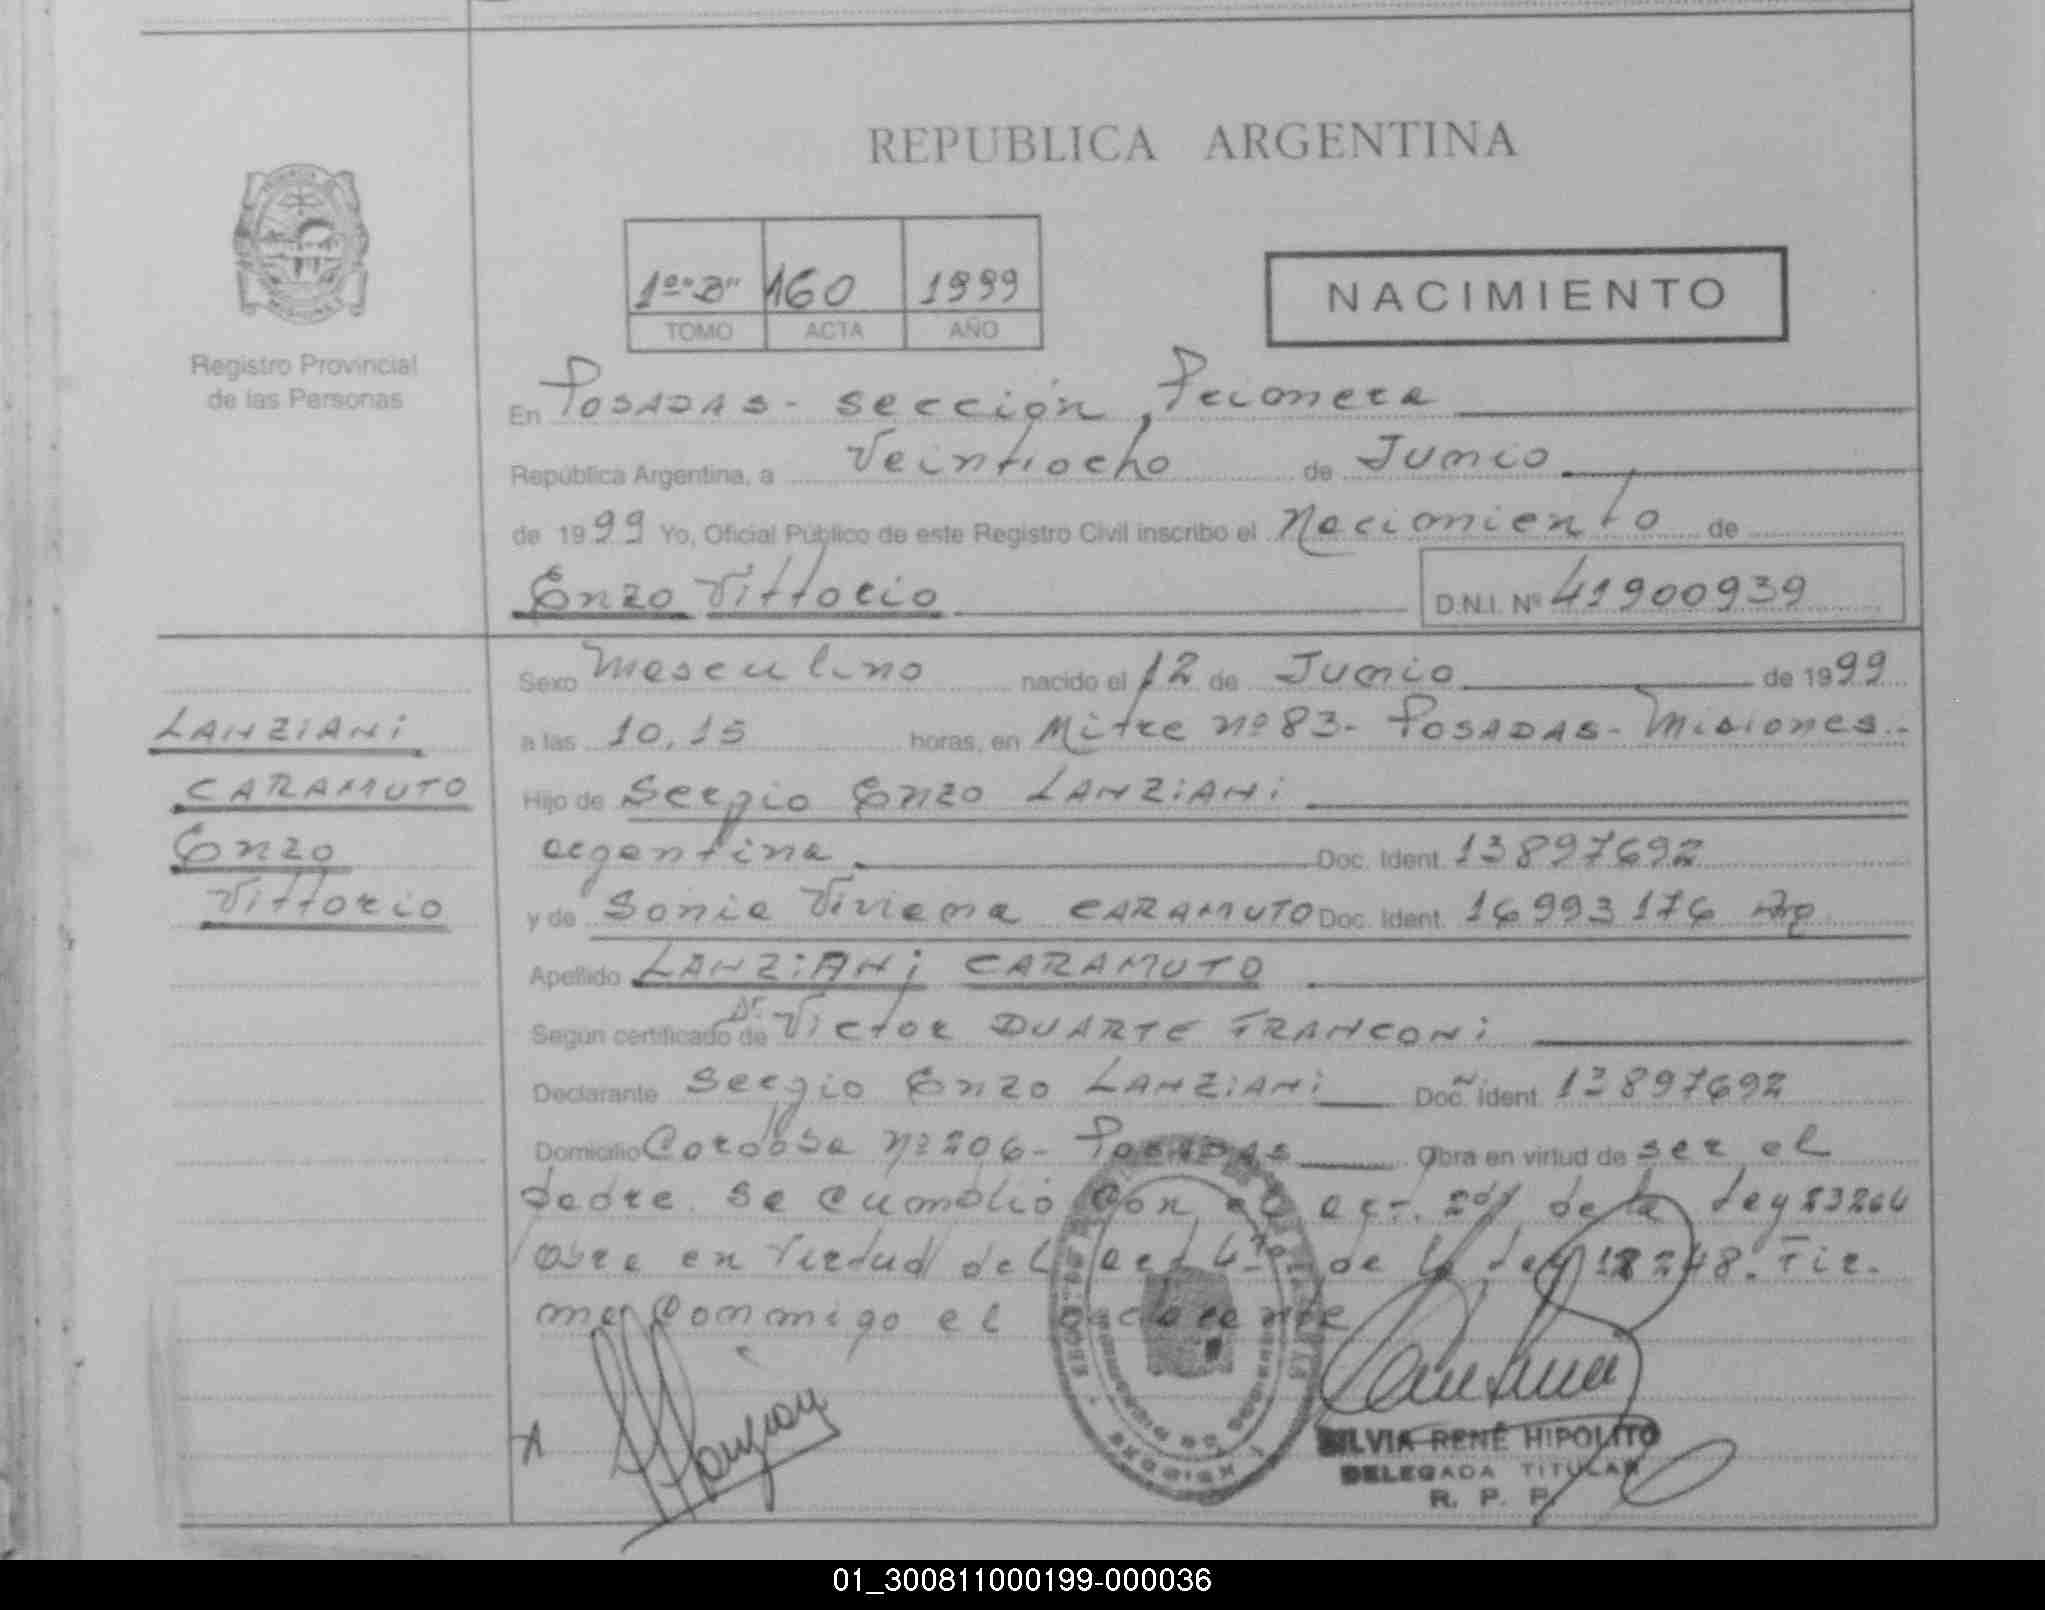 REPUBLICA ARGENTINA
1º "B" 160 1999
TOMO ACTA AÑO
NACIMIENTO
Registro Provincial
de las Personas
En Posadas - sección Primera
República Argentina, a Veintiocho de Junio
de 1999 Yo, Oficial Público de este Registro Civil inscribo el Nacimiento de
Enzo Vittorio D.N.I. Nº 41900939
LANZIANI
CARAMUTO
Enzo
Vittorio
Sexo Masculino nacido el 12 de Junio de 1999
a las 10,15 horas, en Mitre nº 83- POSADAS- Misiones.-
Hijo de Sergio Enzo LANZIANI
argentina Doc. Ident. 13897692
y de Sonia Viviana CARAMUTO Doc. Ident. 16993176 Arg
Apellido LANZIANI CARAMUTO
Según certificado de Dr. Victor DUARTE FRANCONI
Declarante Sergio Enzo LANZIANI Doc. Ident. 13897692
Domicilio Cordoba nº 206- POSADAS Obra en virtud de ser el
padre. Se cumplió con el art. de la Ley 23264
obra en Virtud del art 4º de la Ley 18248. Fir-
ma Conmigo el declarante
SILVIA RENÉ HIPOLITO
DELEGADA TITULAR
R. P. P.
01_300811000199-000036